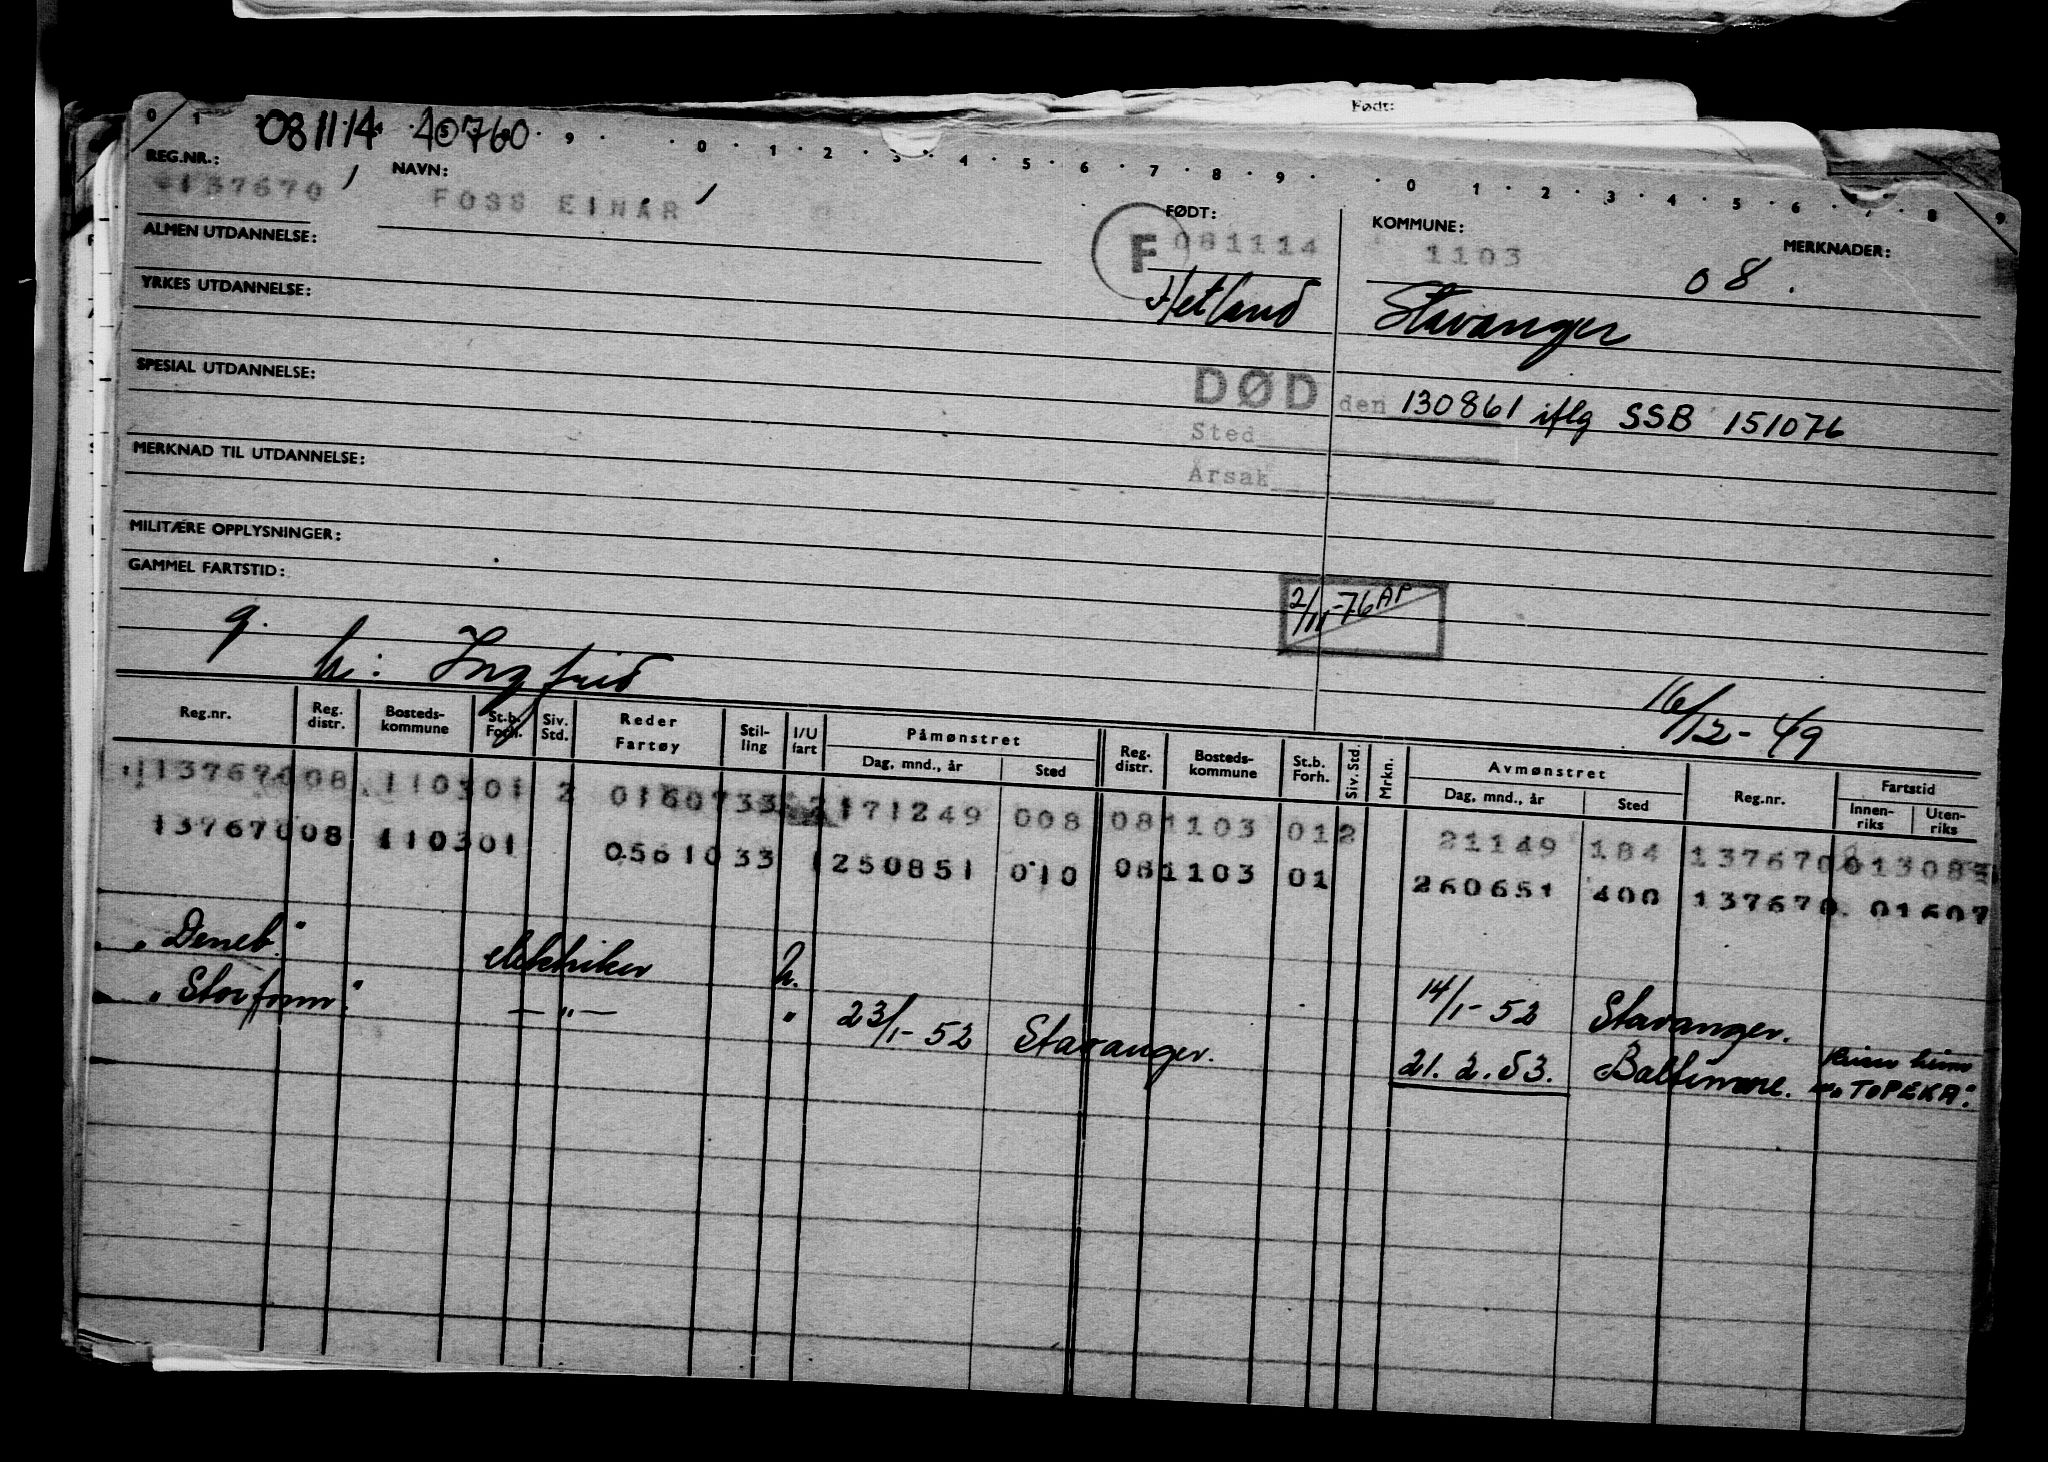 Født:
0 1 081114 40760 9 0 1 2 3 4 5 6 7 8 9 0 1 2 3 4 5 6 7 8 9
REG.NR.: NAVN: FØDT: KOMMUNE: MERKNADER:
137670 FOSS EINAR F 081114 1103 08.
ALMEN UTDANNELSE:
Hetland Stavanger
YRKES UTDANNELSE:
SPESIAL UTDANNELSE:
DØD den 130861 iflg SSB 151076
Sted
Årsak
MERKNAD TIL UTDANNELSE:
MILITÆRE OPPLYSNINGER:
GAMMEL FARTSTID:
2/11-76 AP
g. h: Ingfrid
16/12-49
Reg.nr. Reg. distr. Bosteds-kommune St.b. Forh. Siv. Std. Reder Fartøy Stil-ling I/U fart Påmønstret Dag, mnd., år Sted Reg. distr. Bosteds-kommune St.b. Forh. Siv. Std. Mrkn. Avmønstret Dag, mnd., år Sted Reg.nr. Fartstid Innen-riks Uten-riks
137670 08 1103 01 2 01607 33 2 171249 008 08 1103 01 2 21149 184 137670
137670 08 1103 01 05610 33 1 250851 010 08 1103 01 260651 400 137670 01607
"Deneb" elektriker h. 14/1-52 Stavanger.
"Storfonn" —"— " 23/1-52 Stavanger. 21.2.53. Baltimore. Reise hjem
m. "TOPEKA".